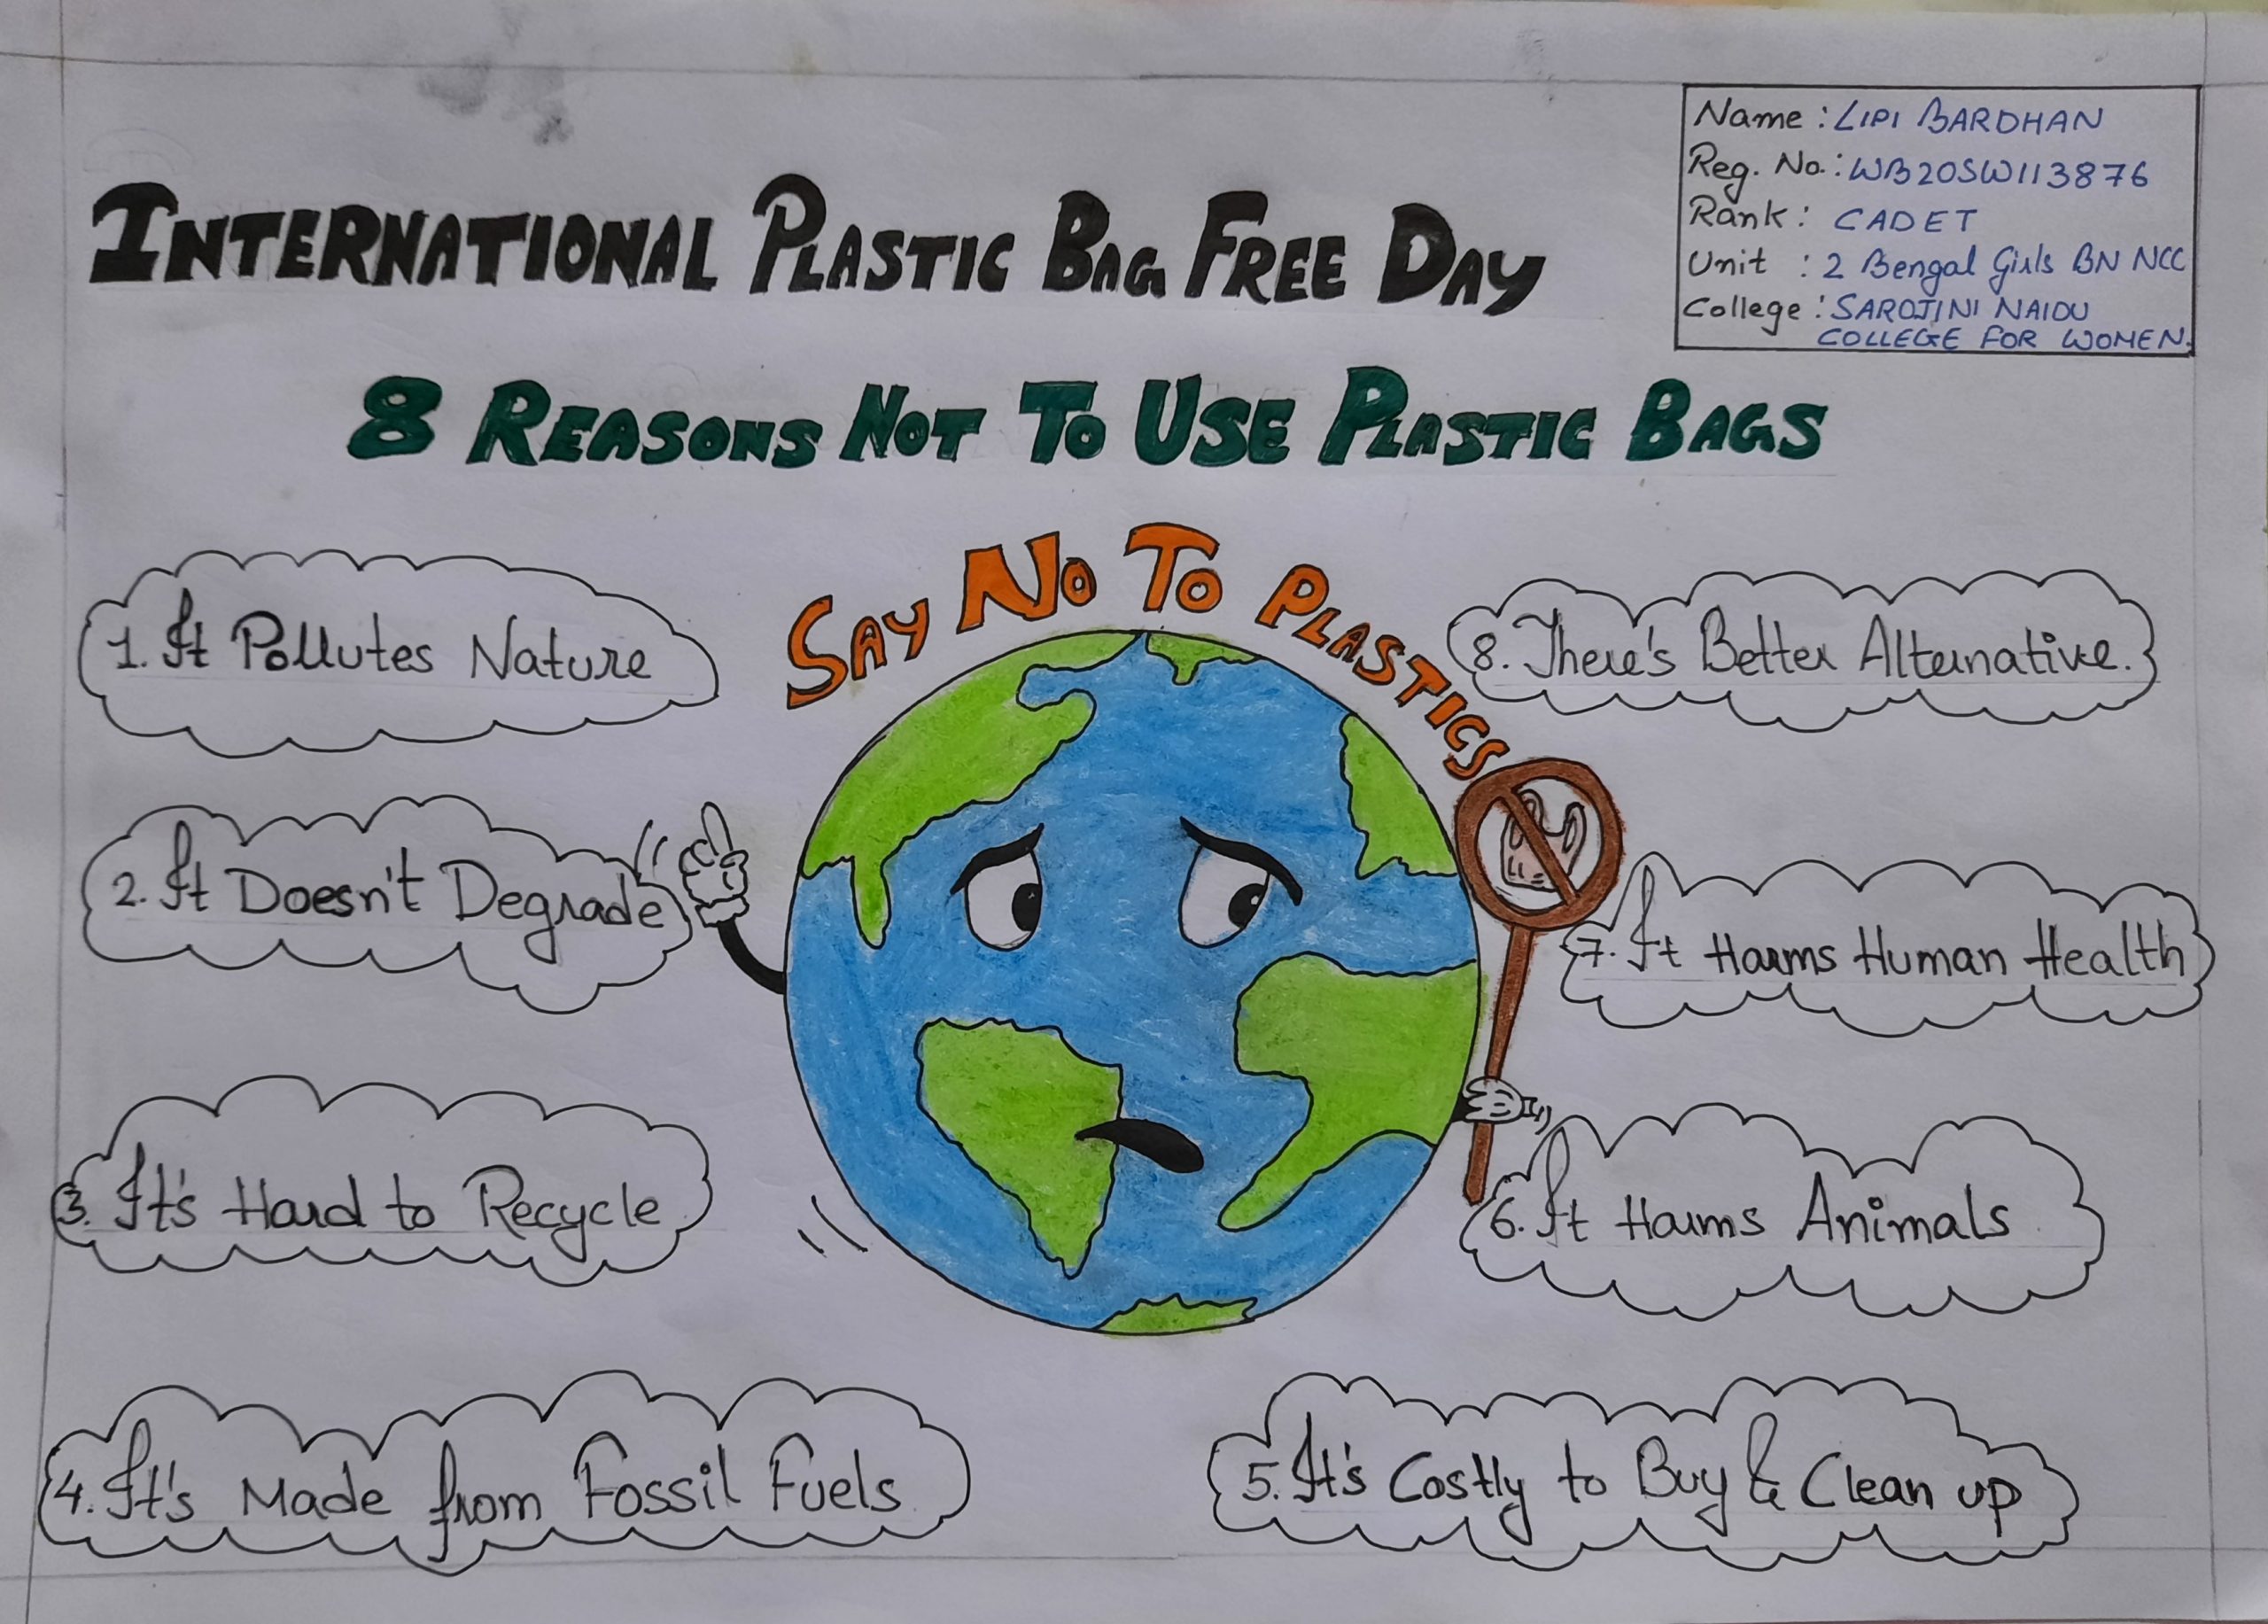 Name : LIPI BARDHAN
Reg. No. : WB20SW113876
Rank : CADET
Unit : 2 Bengal Girls BN NCC
College : SAROJINI NAIDU
COLLEGE FOR WOMEN.
INTERNATIONAL PLASTIC BAG FREE DAY
8 REASONS NOT TO USE PLASTIC BAGS
SAY NO TO PLASTICS
1. It Pollutes Nature
2. It Doesn't Degrade
3. It's Hard to Recycle
4. It's Made from Fossil Fuels
5. It's Costly to Buy & Clean up
6. It Harms Animals
7. It Harms Human Health
8. There's Better Alternative.